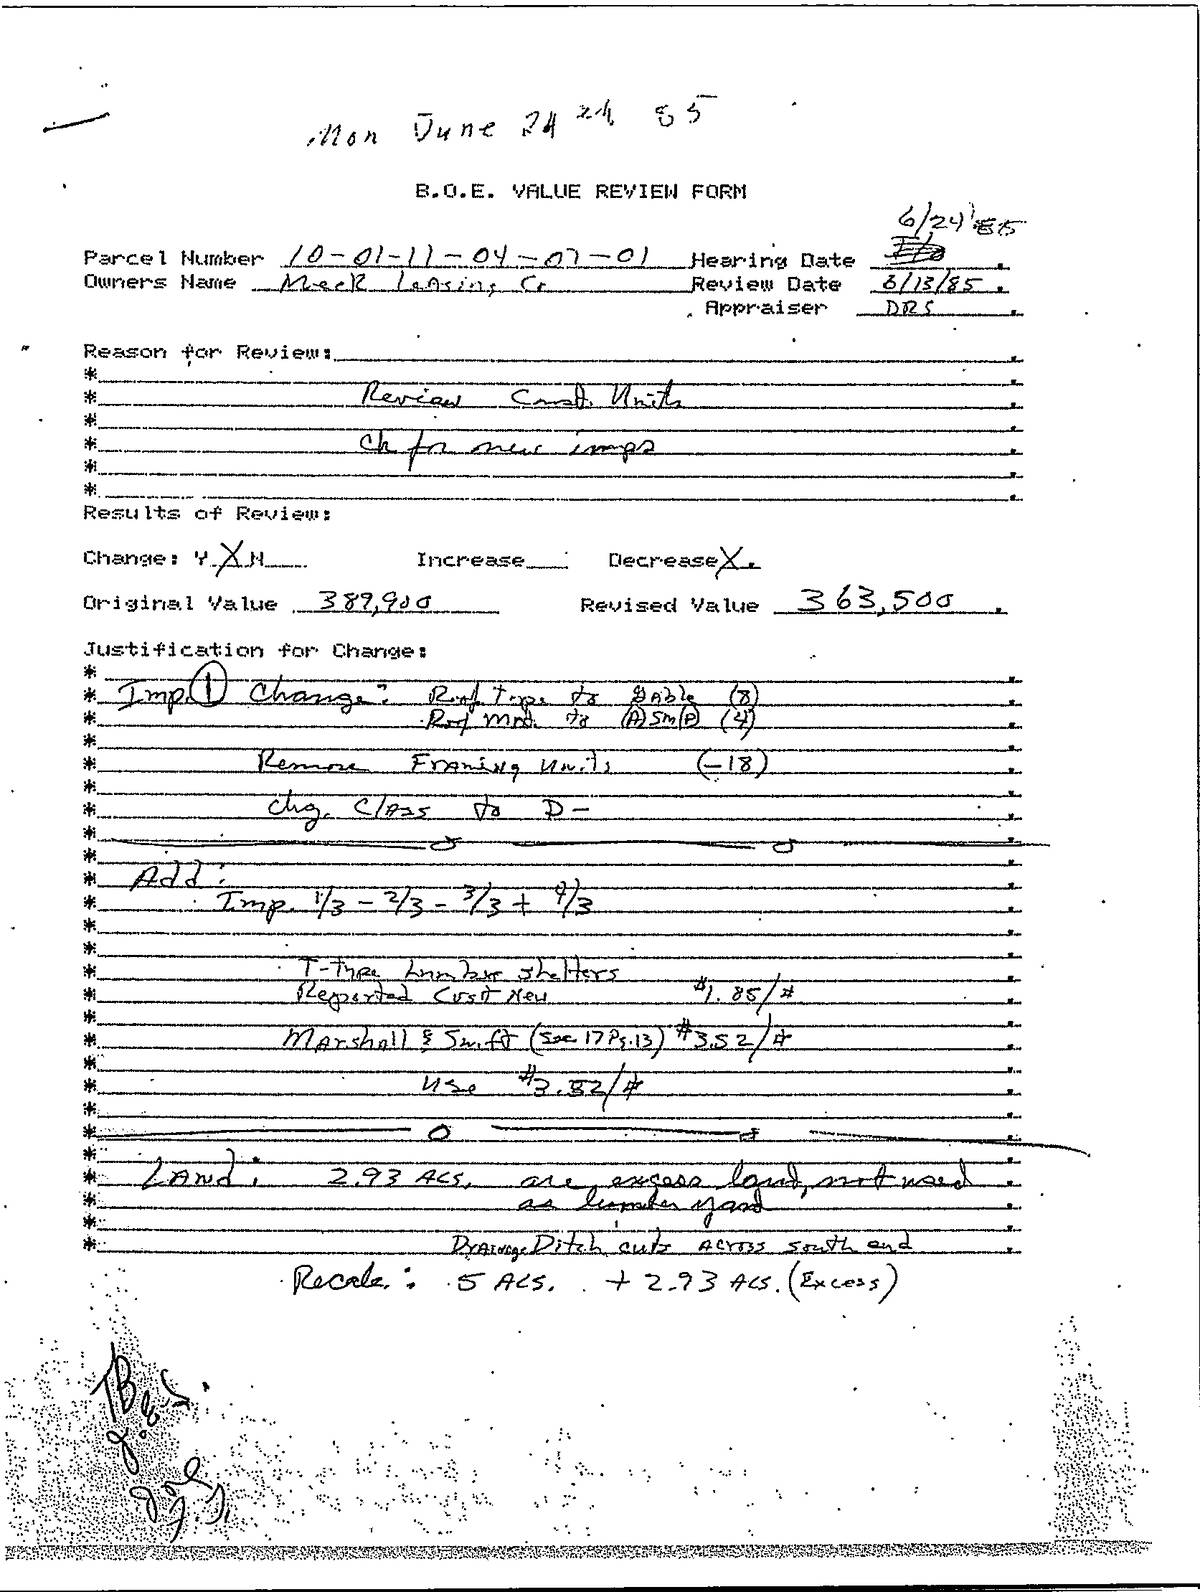 Mon June 24 th 85
B.O.E. VALUE REVIEW FORM
6/24/85
Parcel Number 10-01-11-04-07-01 Hearing Date
Owners Name Meek Leasing Co Review Date 6/13/85
Appraiser DRS
Reason for Review:
* Review Const. Units
* Ck for new imps
Results of Review:
Change: Y X N Increase Decrease X
Original Value 389,900 Revised Value 363,500
Justification for Change:
* Imp. 1 Change: Roof Type to Gable (8)
* Roof Mat. to (A) Sm(P) (4)
* Remove Framing Units (-18)
* chg. Class to D-
* Add:
* Imp. 1/3 - 2/3 - 3/3 + 4/3
* T-Type Lumber shelters
* Reported Cost New $1.85/#
* Marshall & Swift (Sec 17 Pg. 13) $3.52/#
* Use $3.52/#
* Land: 2.93 Acs. are excess land, not used
* as lumber yard
* Drainage Ditch cuts across south end
Recalc: .5 Acs. + 2.93 Acs. (Excess)